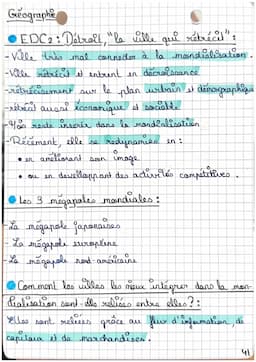 Géographie
EDC2 : Détroit, "la ville qui rétrécit" :
- Ville très mal connecter à la mondialisation.
- Ville rétrécit et entrent en décroissance
- rétrécissement sur le plan urbain et démographique
rétrécit aussi économique et sociable
reste inserir dans la mondialisation
- Récement, elle se redynamise en :
• en améliorant son image
• ou en développant des activités compétitives.
Les 3 mégapoles mondiales :
- La mégapole japonaises
- La mégapole européene
- La mégapole nord-américaine
Comment les villes les mieux intégrer dans la mon-
dialisation sont-elles reliées entre elles ? :
Elles sont reliées grâce au flux d'information, de
capitaux et de marchandises.
41